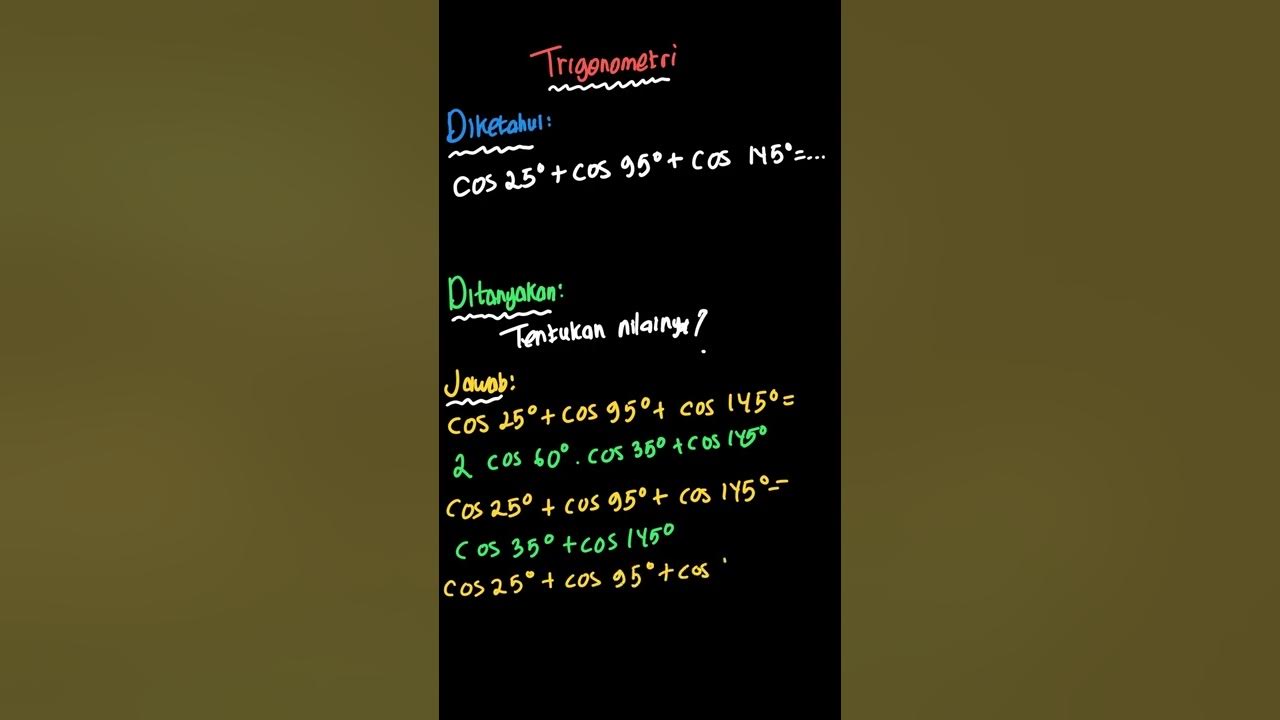 Trigonometri
Diketahui:
cos 25° + cos 95° + cos 145° = ...
Ditanyakan:
Tentukan nilainya?
Jawab:
cos 25° + cos 95° + cos 145° =
2 cos 60° . cos 35° + cos 145°
cos 25° + cos 95° + cos 145° =
cos 35° + cos 145°
cos 25° + cos 95° + cos